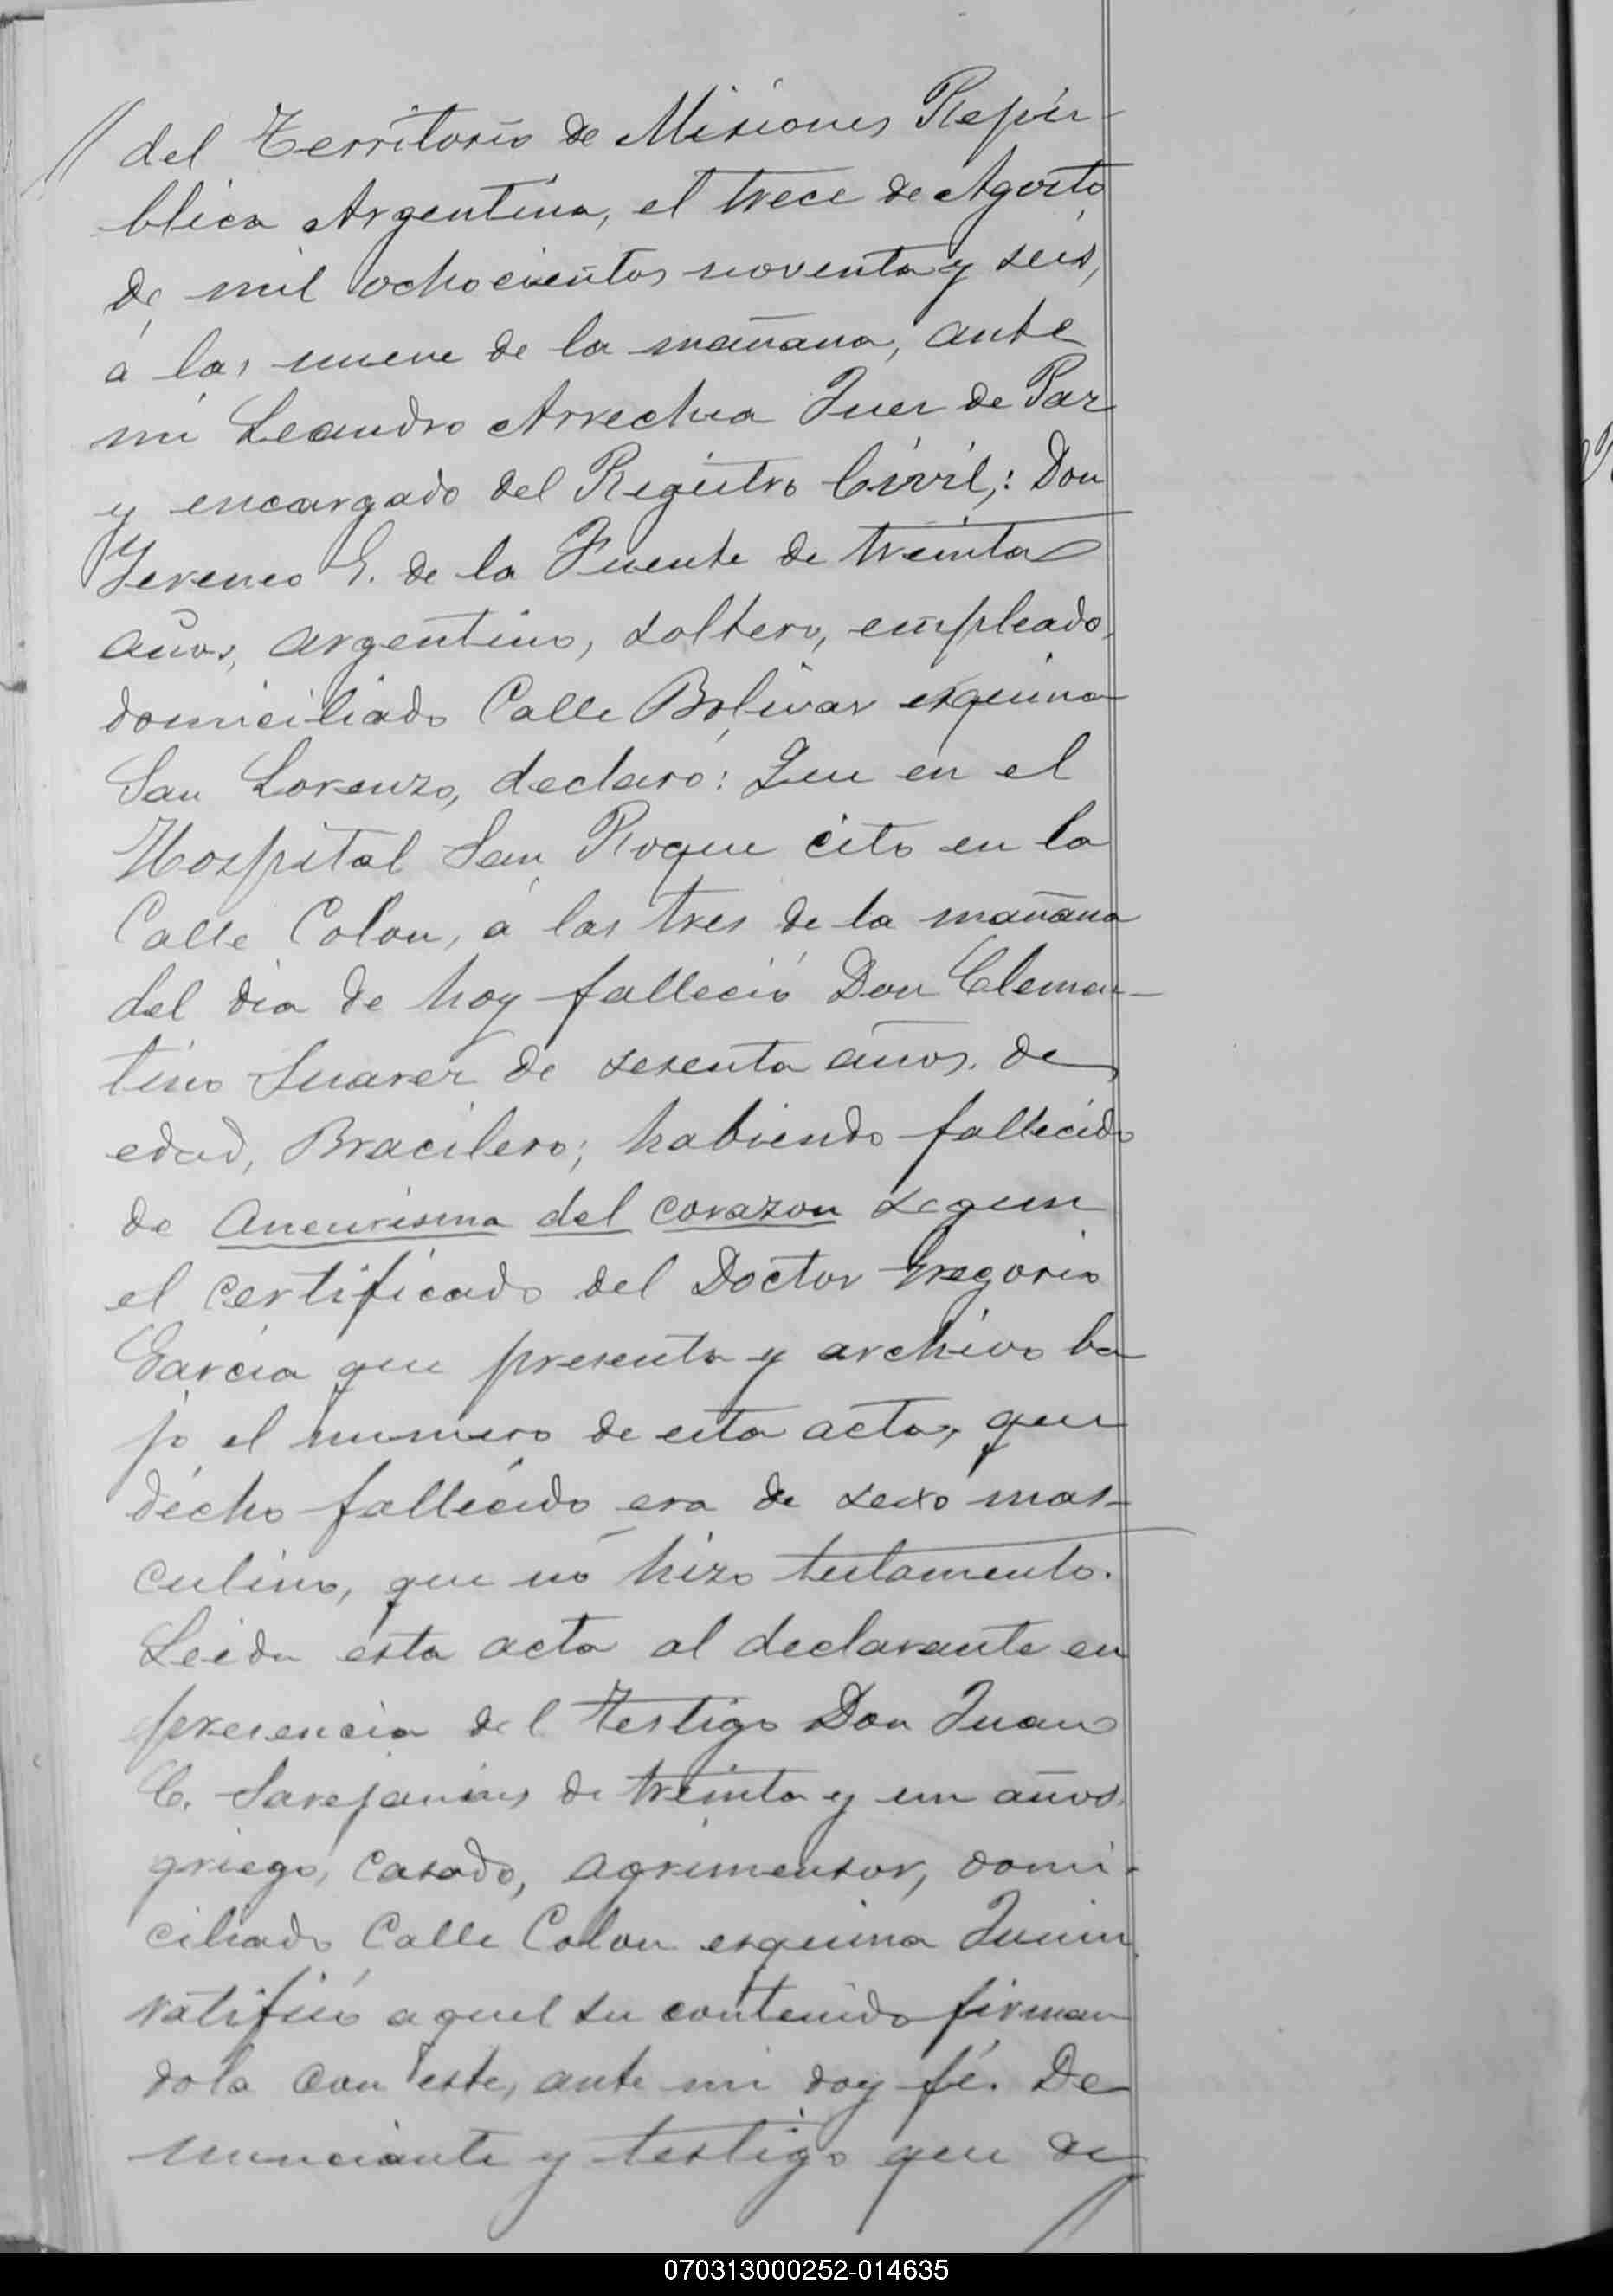 // del Territorio de Misiones Repú-
blica Argentina, el trece de Agosto
de mil ochocientos noventa y seis,
á las nueve de la mañana, ante
mi Leandro Arrechea Juez de Paz
y encargado del Registro Civil,: Don
de la Fuente de treinta
años, argentino, soltero, empleado,
domiciliado Calle Bolivar esquina
San Lorenzo, declaró: Que en el
Hospital San Roque cito en la
Calle Colon, á las tres de la mañana
del dia de hoy falleció Don Clemen-
tino Suarez de sesenta años de
edad, Bracilero; habiendo fallecido
de aneurisma del corazon segun
el certificado del Doctor Gregorio
Garcia que presenta y archivo ba
jo el numero de esta acta, que
dicho fallecido era de sexo mas-
culino, que no hizo testamento.
Leida esta acta al declarante en
presencia del testigo Don Juan
C. de treinta y un años,
griego, casado, agrimensor, domi-
ciliado Calle Colon esquina Junin,
ratificó aquel su contenido firman
dola con este, ante mi doy fé. De
nunciante y testigo que de
//
070313000252-014635